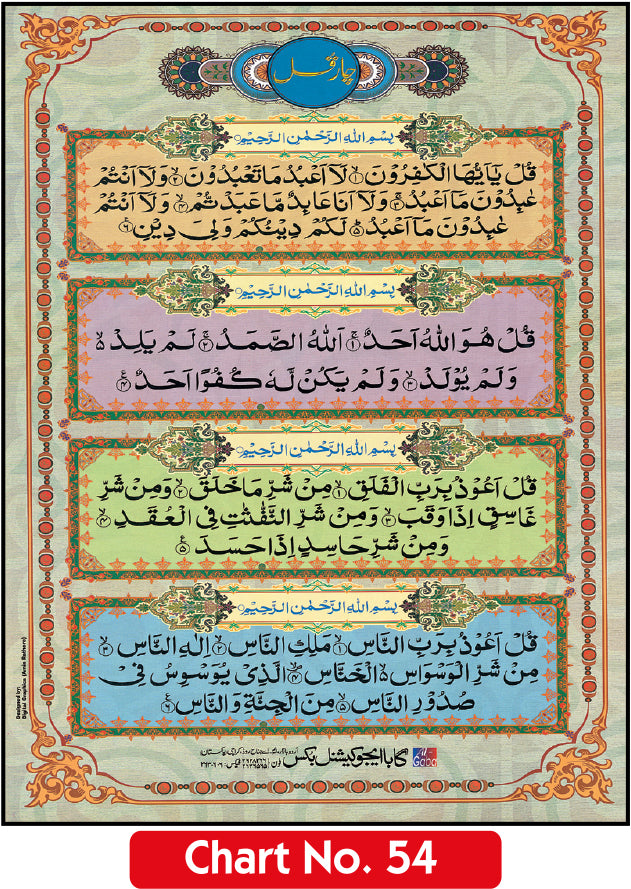 چار قل
بِسْمِ اللهِ الرَّحْمٰنِ الرَّحِيْمِ
قُلْ يٰۤاَيُّهَا الْكٰفِرُوْنَ ۙ۱ لَاۤ اَعْبُدُ مَا تَعْبُدُوْنَ ۙ۲ وَلَاۤ اَنْتُمْ
عٰبِدُوْنَ مَاۤ اَعْبُدُ ۚ۳ وَلَاۤ اَنَا عَابِدٌ مَّا عَبَدْتُّمْ ۙ۴ وَلَاۤ اَنْتُمْ
عٰبِدُوْنَ مَاۤ اَعْبُدُ ؕ۵ لَكُمْ دِيْنُكُمْ وَلِيَ دِيْنِ ۠۶
بِسْمِ اللهِ الرَّحْمٰنِ الرَّحِيْمِ
قُلْ هُوَ اللهُ اَحَدٌ ۚ۱ اَللهُ الصَّمَدُ ۚ۲ لَمْ يَلِدْ ۙ۬
وَلَمْ يُوْلَدْ ۙ۳ وَلَمْ يَكُنْ لَّهٗ كُفُوًا اَحَدٌ ۠۴
بِسْمِ اللهِ الرَّحْمٰنِ الرَّحِيْمِ
قُلْ اَعُوْذُ بِرَبِّ الْفَلَقِ ۙ۱ مِنْ شَرِّ مَا خَلَقَ ۙ۲ وَمِنْ شَرِّ
غَاسِقٍ اِذَا وَقَبَ ۙ۳ وَمِنْ شَرِّ النَّفّٰثٰتِ فِي الْعُقَدِ ۙ۴
وَمِنْ شَرِّ حَاسِدٍ اِذَا حَسَدَ ۠۵
بِسْمِ اللهِ الرَّحْمٰنِ الرَّحِيْمِ
قُلْ اَعُوْذُ بِرَبِّ النَّاسِ ۙ۱ مَلِكِ النَّاسِ ۙ۲ اِلٰهِ النَّاسِ ۙ۳
مِنْ شَرِّ الْوَسْوَاسِ ۙ۬ الْخَنَّاسِ ۙ۴ الَّذِيْ يُوَسْوِسُ فِيْ
صُدُوْرِ النَّاسِ ۙ۵ مِنَ الْجِنَّةِ وَالنَّاسِ ۠۶
Designed by:
Digital Graphics (Amin Rustam)
گابا ایجوکیشنل بکس
Al-Gaba
Chart No. 54